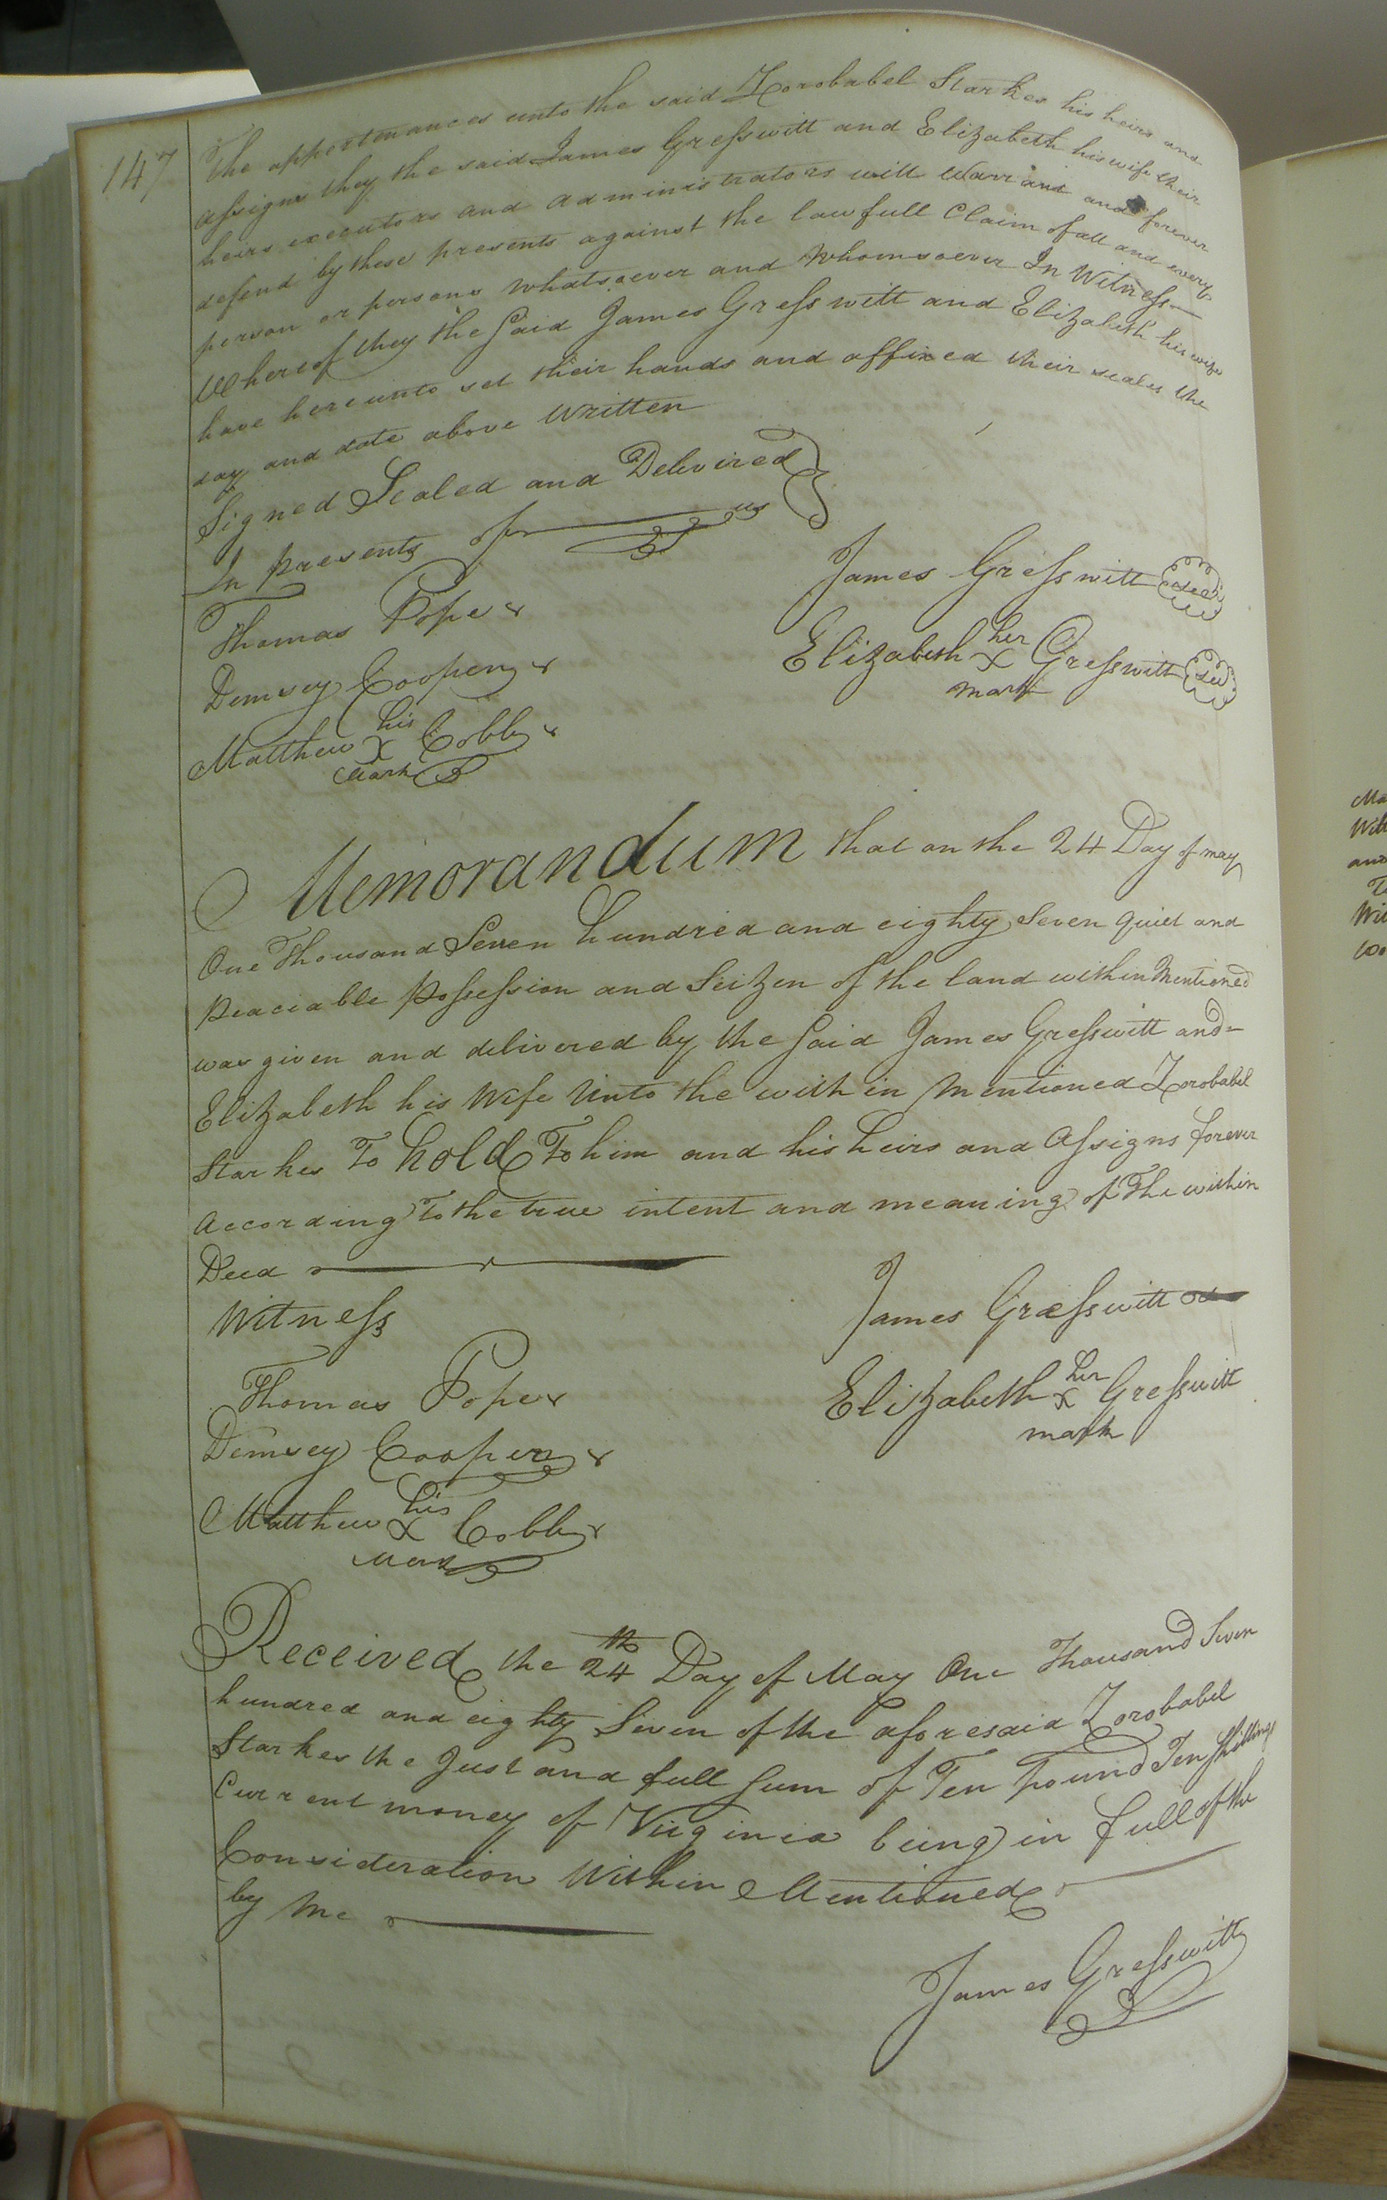 147
The appertenances unto the said Zorobabel Starkes his heirs and
assigns they the said James Gresswitt and Elizabeth his wife their
heirs executors and administrators will Warrand and forever
defend by these presents against the lawfull Claim of all and every
person or persons whatsoever and Whomsoever In Witness
Whereof they the said James Gresswitt and Elizabeth his wife
have hereunto set their hands and affixed their seales the
day and date above written
Signed Sealed and Delivired
In presents of us
Thomas Pope
James Gresswitt seal
Demsey Cooper
Elizabeth her X mark Gresswitt
Matthew his X mark Cobb
Memorandum that on the 24 Day of may
One Thousand Seven hundred and eighty Seven quiet and
peaciable possession and Seitzen of the land within Mentioned
was given and delivered by the said James Gresswitt and
Elizabeth his Wife Unto the with in Mentioned Zorobabel
Starkes To hold To him and his heirs and Assigns forever
According To the true intent and meaning of The within
Deed
Witness
James Gresswitt
Thomas Pope
Elizabeth her X mark Gresswitt
Demsey Cooper
Matthew his X mark Cobb
Received the 24th Day of May One Thousand Seven
hundred and eighty Seven of the aforesaid Zorobabel
Starkes the Just and full Sum of Ten pound Ten shillings
Current money of Virginia being in full of the
Consideration Within Mentioned
by Me
James Gresswitt